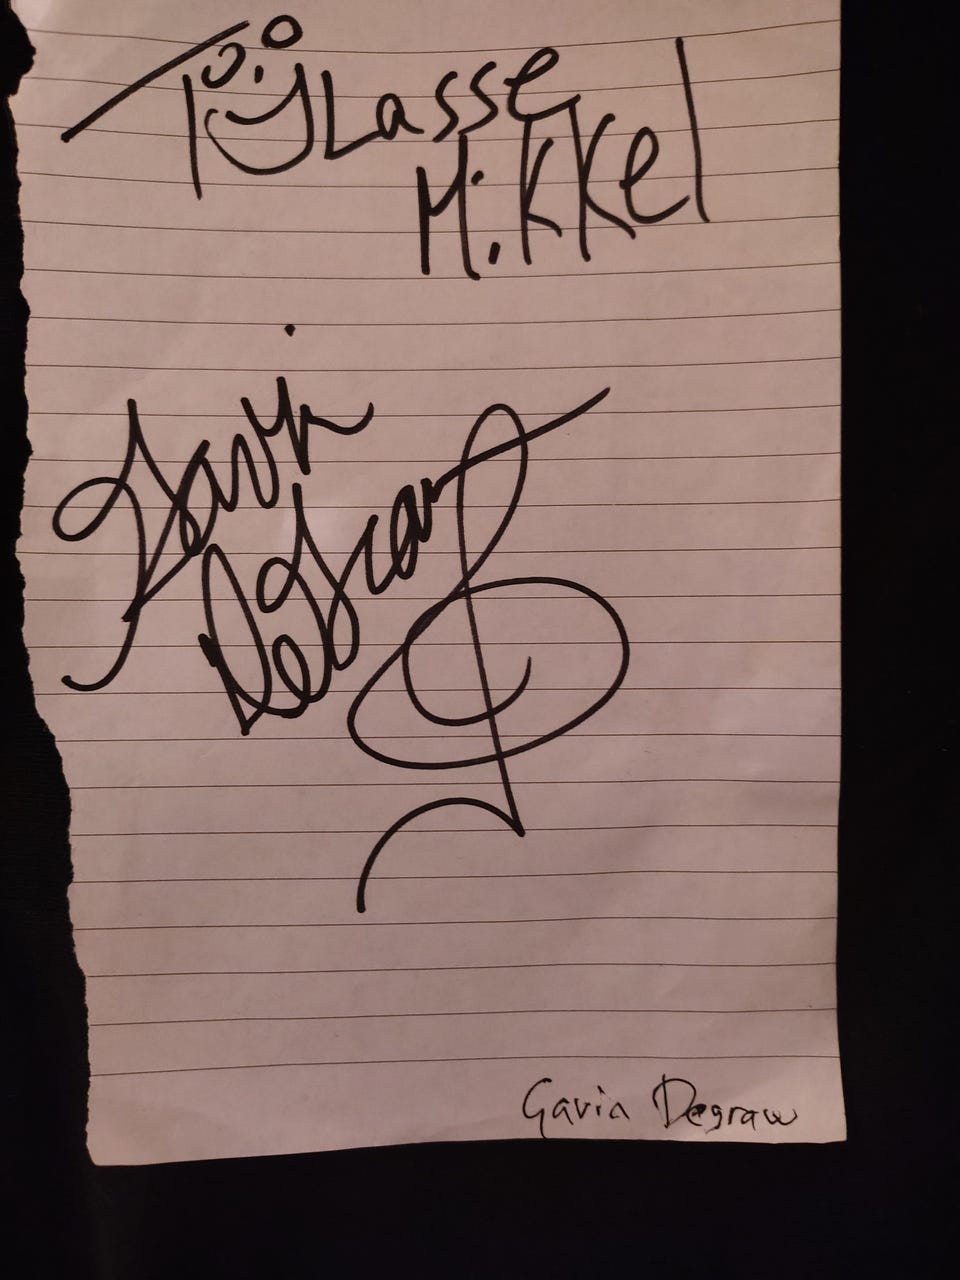 To: Lasse
Mikkel
Gavin
DeGraw
Gavin Degraw